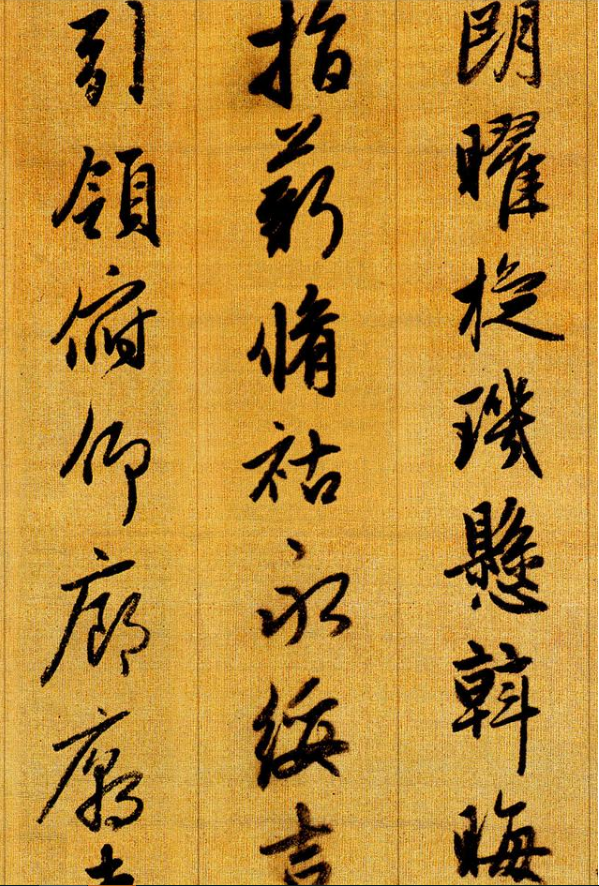 朗曜旋璣懸斡晦
指薪脩祜永綏吉
引領俯仰廊廟